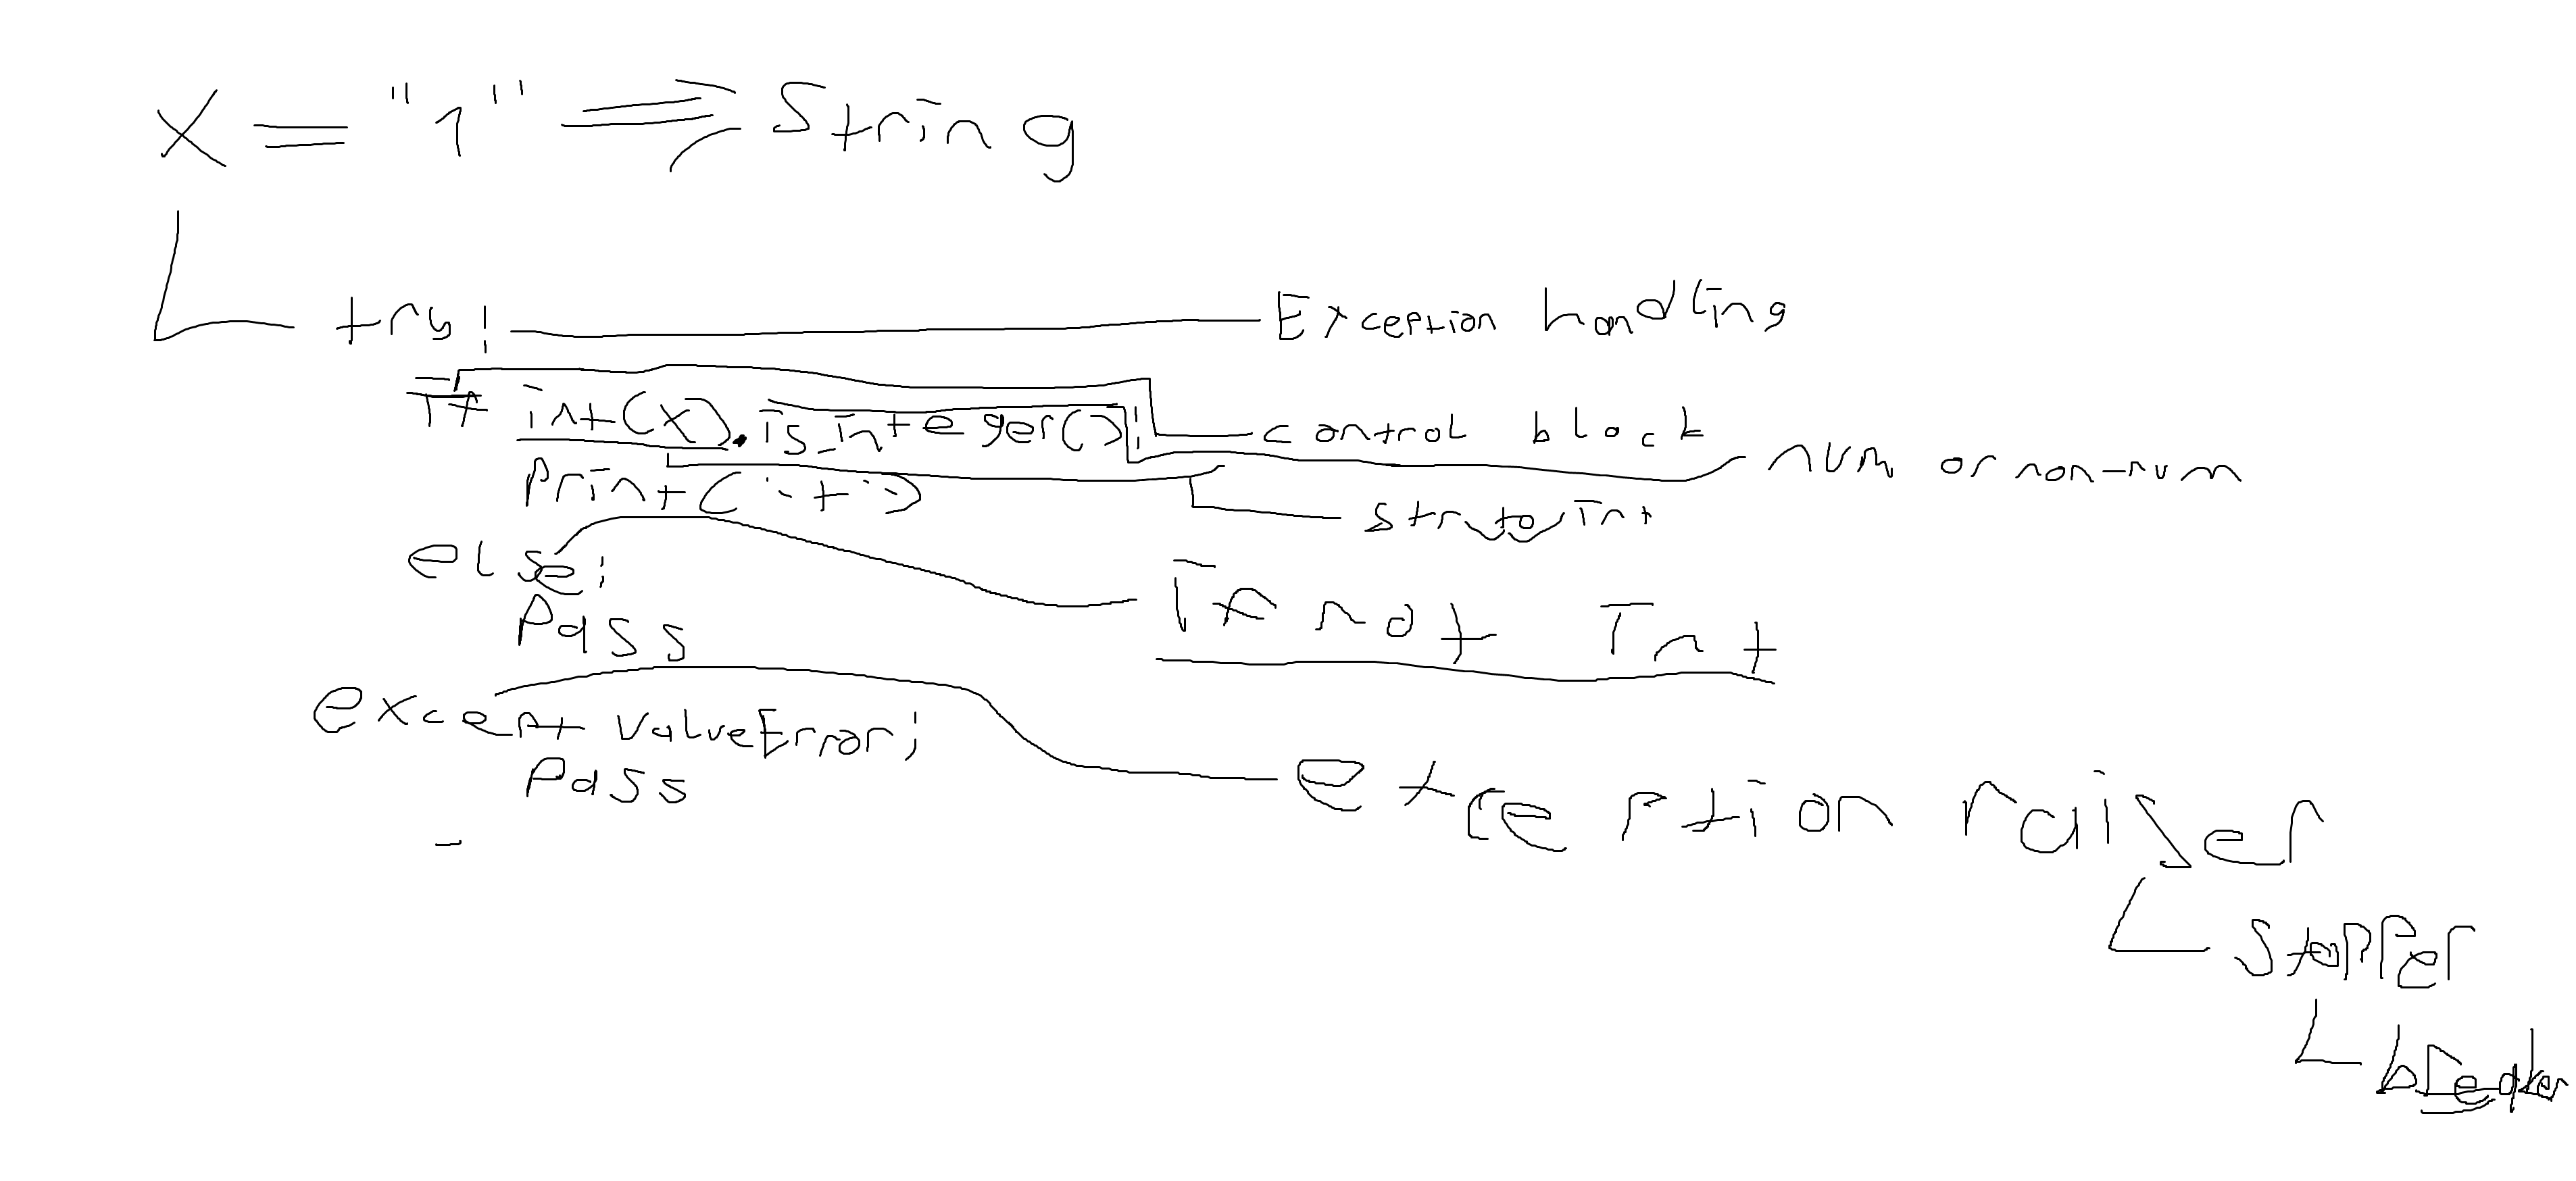 X = "1" => String
try: Exception handling
If int(x).is_integer(): control block
num or non-num
print('+') str to int
else: If not Int
Pass
except valueError: exception raiser
Pass
stopper
breaker